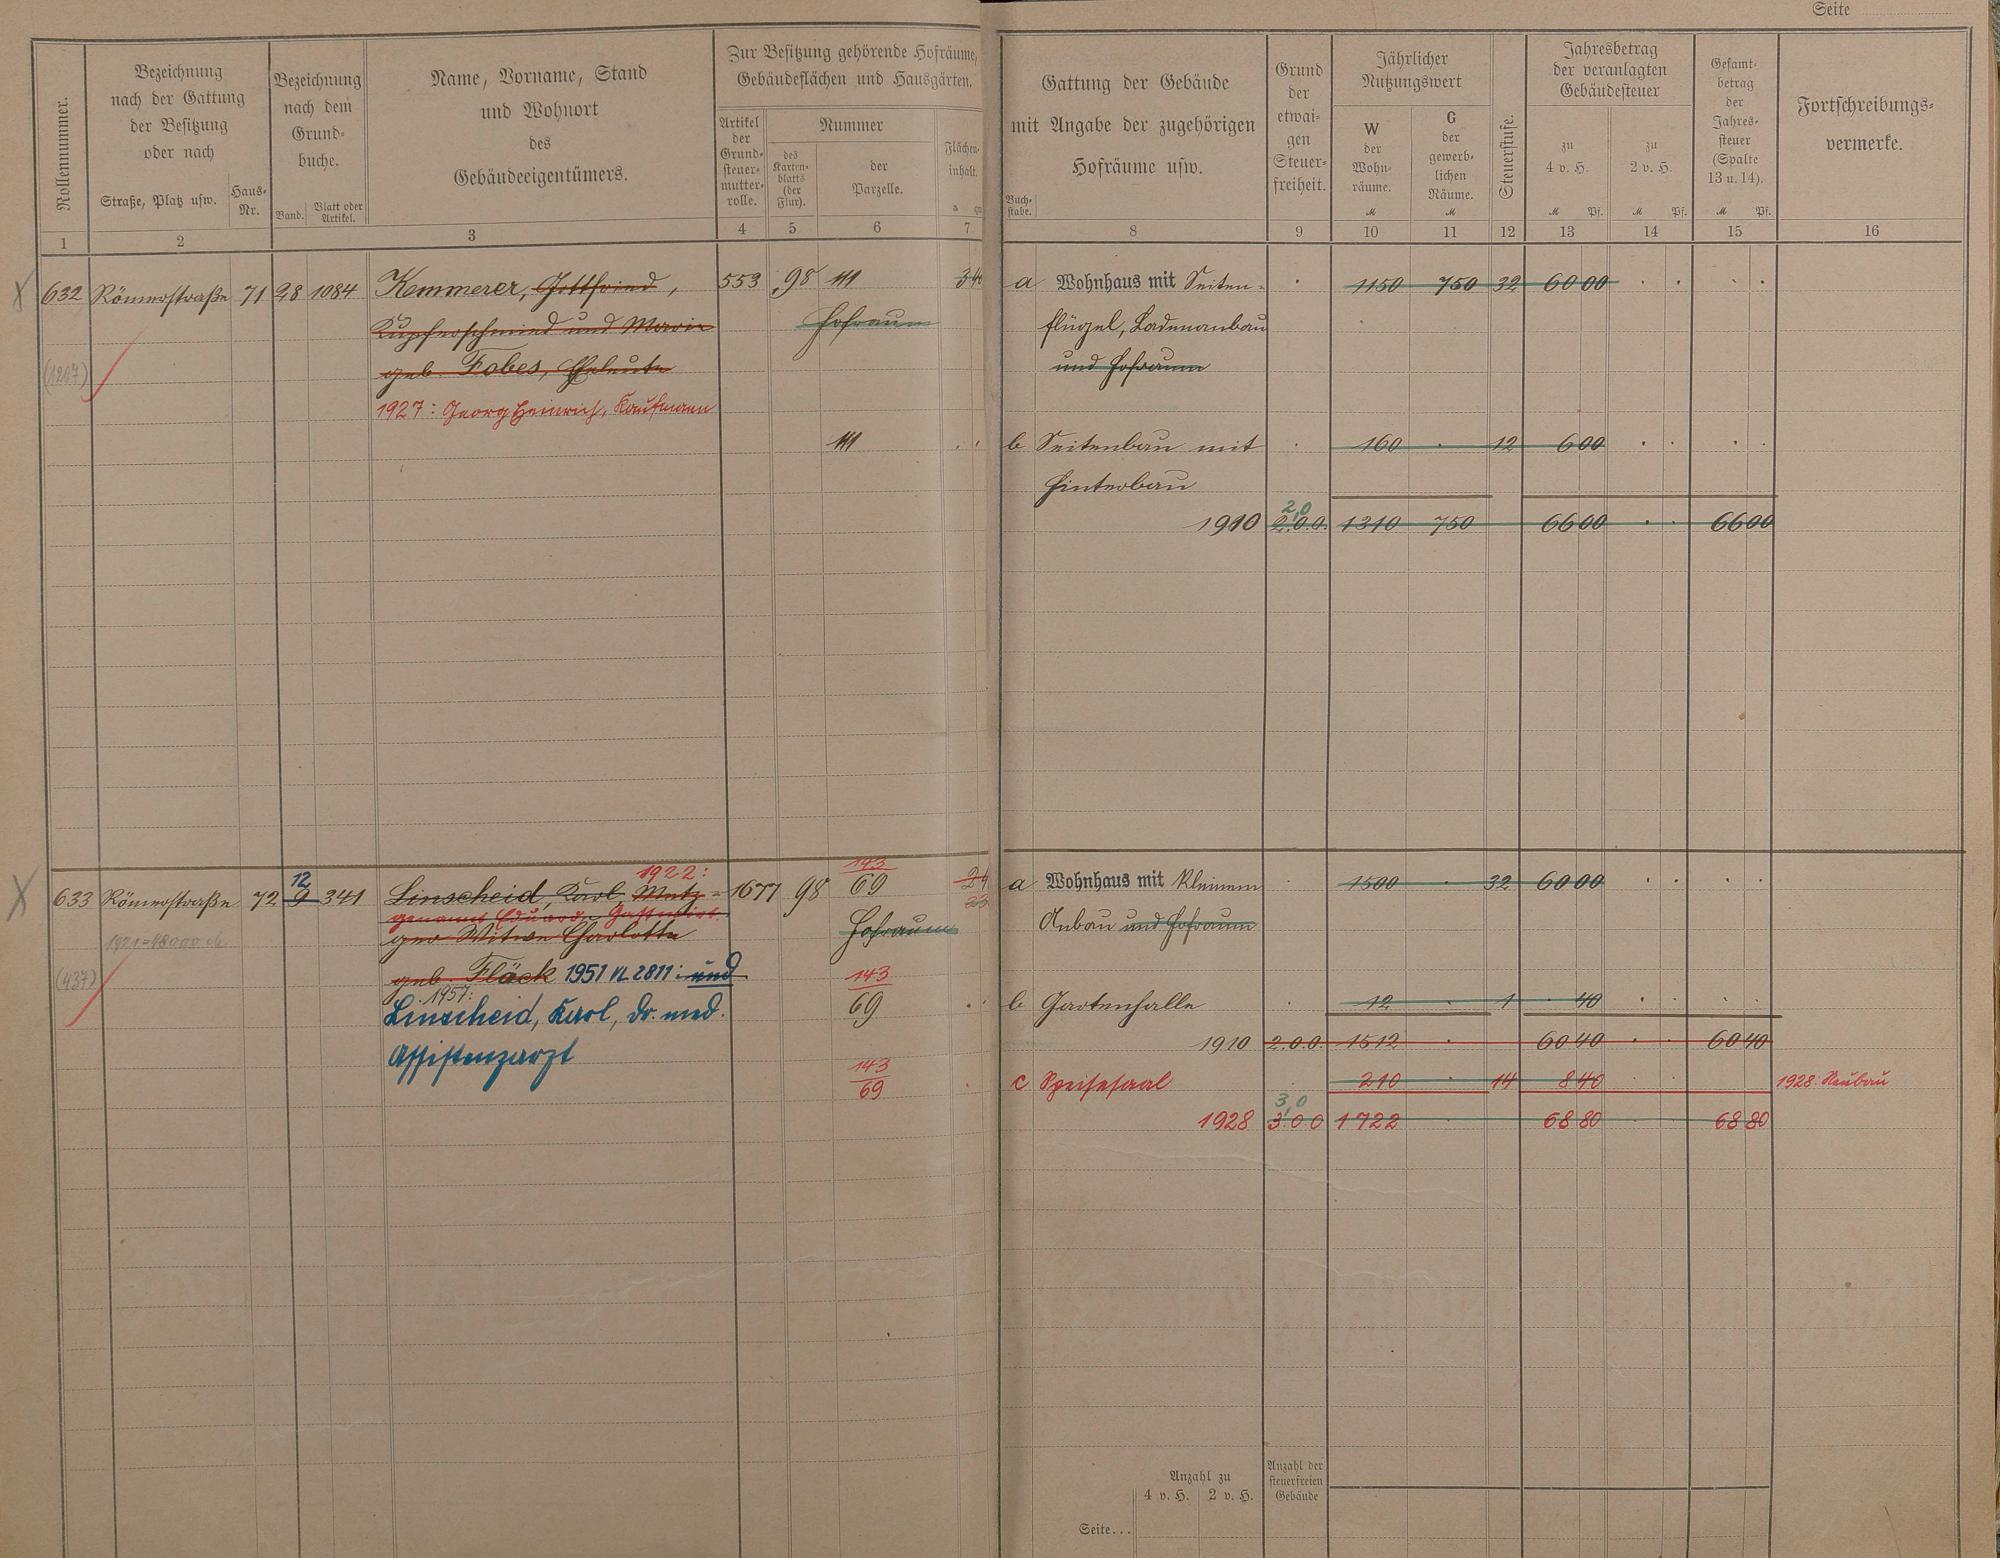 Seite
Rollennummer.
Bezeichnung
nach der Gattung
der Besitzung
oder nach
Straße, Platz usw.
Haus-
Nr.
Bezeichnung
nach dem
Grund-
buche.
Band.
Blatt oder
Artikel.
Name, Vorname, Stand
und Wohnort
des
Gebäudeeigentümers.
Zur Besitzung gehörende Hofräume,
Gebäudeflächen und Hausgärten.
Artikel
der
Grund-
steuer-
mutter-
rolle.
Nummer
des
Karten-
blatts
(der
Flur).
der
Parzelle.
Flächen-
inhalt.
Gattung der Gebäude
mit Angabe der zugehörigen
Hofräume usw.
Buch-
stabe.
Grund
der
etwai-
gen
Steuer-
freiheit.
Jährlicher
Nutzungswert
W
der
Wohn-
räume.
M
G
der
gewerb-
lichen
Räume.
M
Steuerstufe.
Jahresbetrag
der veranlagten
Gebäudesteuer
zu
4 v. H.
M Pf.
zu
2 v. H.
M Pf.
Gesamt-
betrag
der
Jahres-
steuer
(Spalte
13 u. 14).
M Pf.
Fortschreibungs-
vermerke.
1 2 3 4 5 6 7 8 9 10 11 12 13 14 15 16
632 Römerstraße 71 28 1084 Kemmerer, Gottfried, 553 98 111 34 a Wohnhaus mit Seiten- 1150 750 32 60 00
Kupferschmied und Maria Hofraum flügel, Ladenanbau
(1207) geb. Fobes, Eheleute und Hofraum
1927: Georg Heinrich, Kaufmann
111 b Seitenbau mit 160 12 6 00
Hinterbau
2,0
1910 2.0.0. 1310 750 66 00 66 00
1922: 143
12
633 Römerstraße 72 9 341 Linscheid, Karl, Metz- 1677 98 69 24 a Wohnhaus mit kleinem 1500 32 60 00
genannt Eduard, Gastwirt 23
ger Witwe Charlotte Hofraum Anbau und Hofraum
1921=48000 M
(437) geb. Fläck 1951 VL 2811: und 143
1957:
Linscheid, Karl, Dr. med. 69 b Gartenhalle 12 1 40
1910 2.0.0. 1512 60 40 60 40
Assistenzarzt 143
69 c Speisesaal 210 14 8 40 1928 Neubau
3,0
1928 3.0.0 1722 68 80 68 80
Anzahl zu
4 v. H. 2 v. H.
Anzahl der
steuerfreien
Gebäude
Seite...